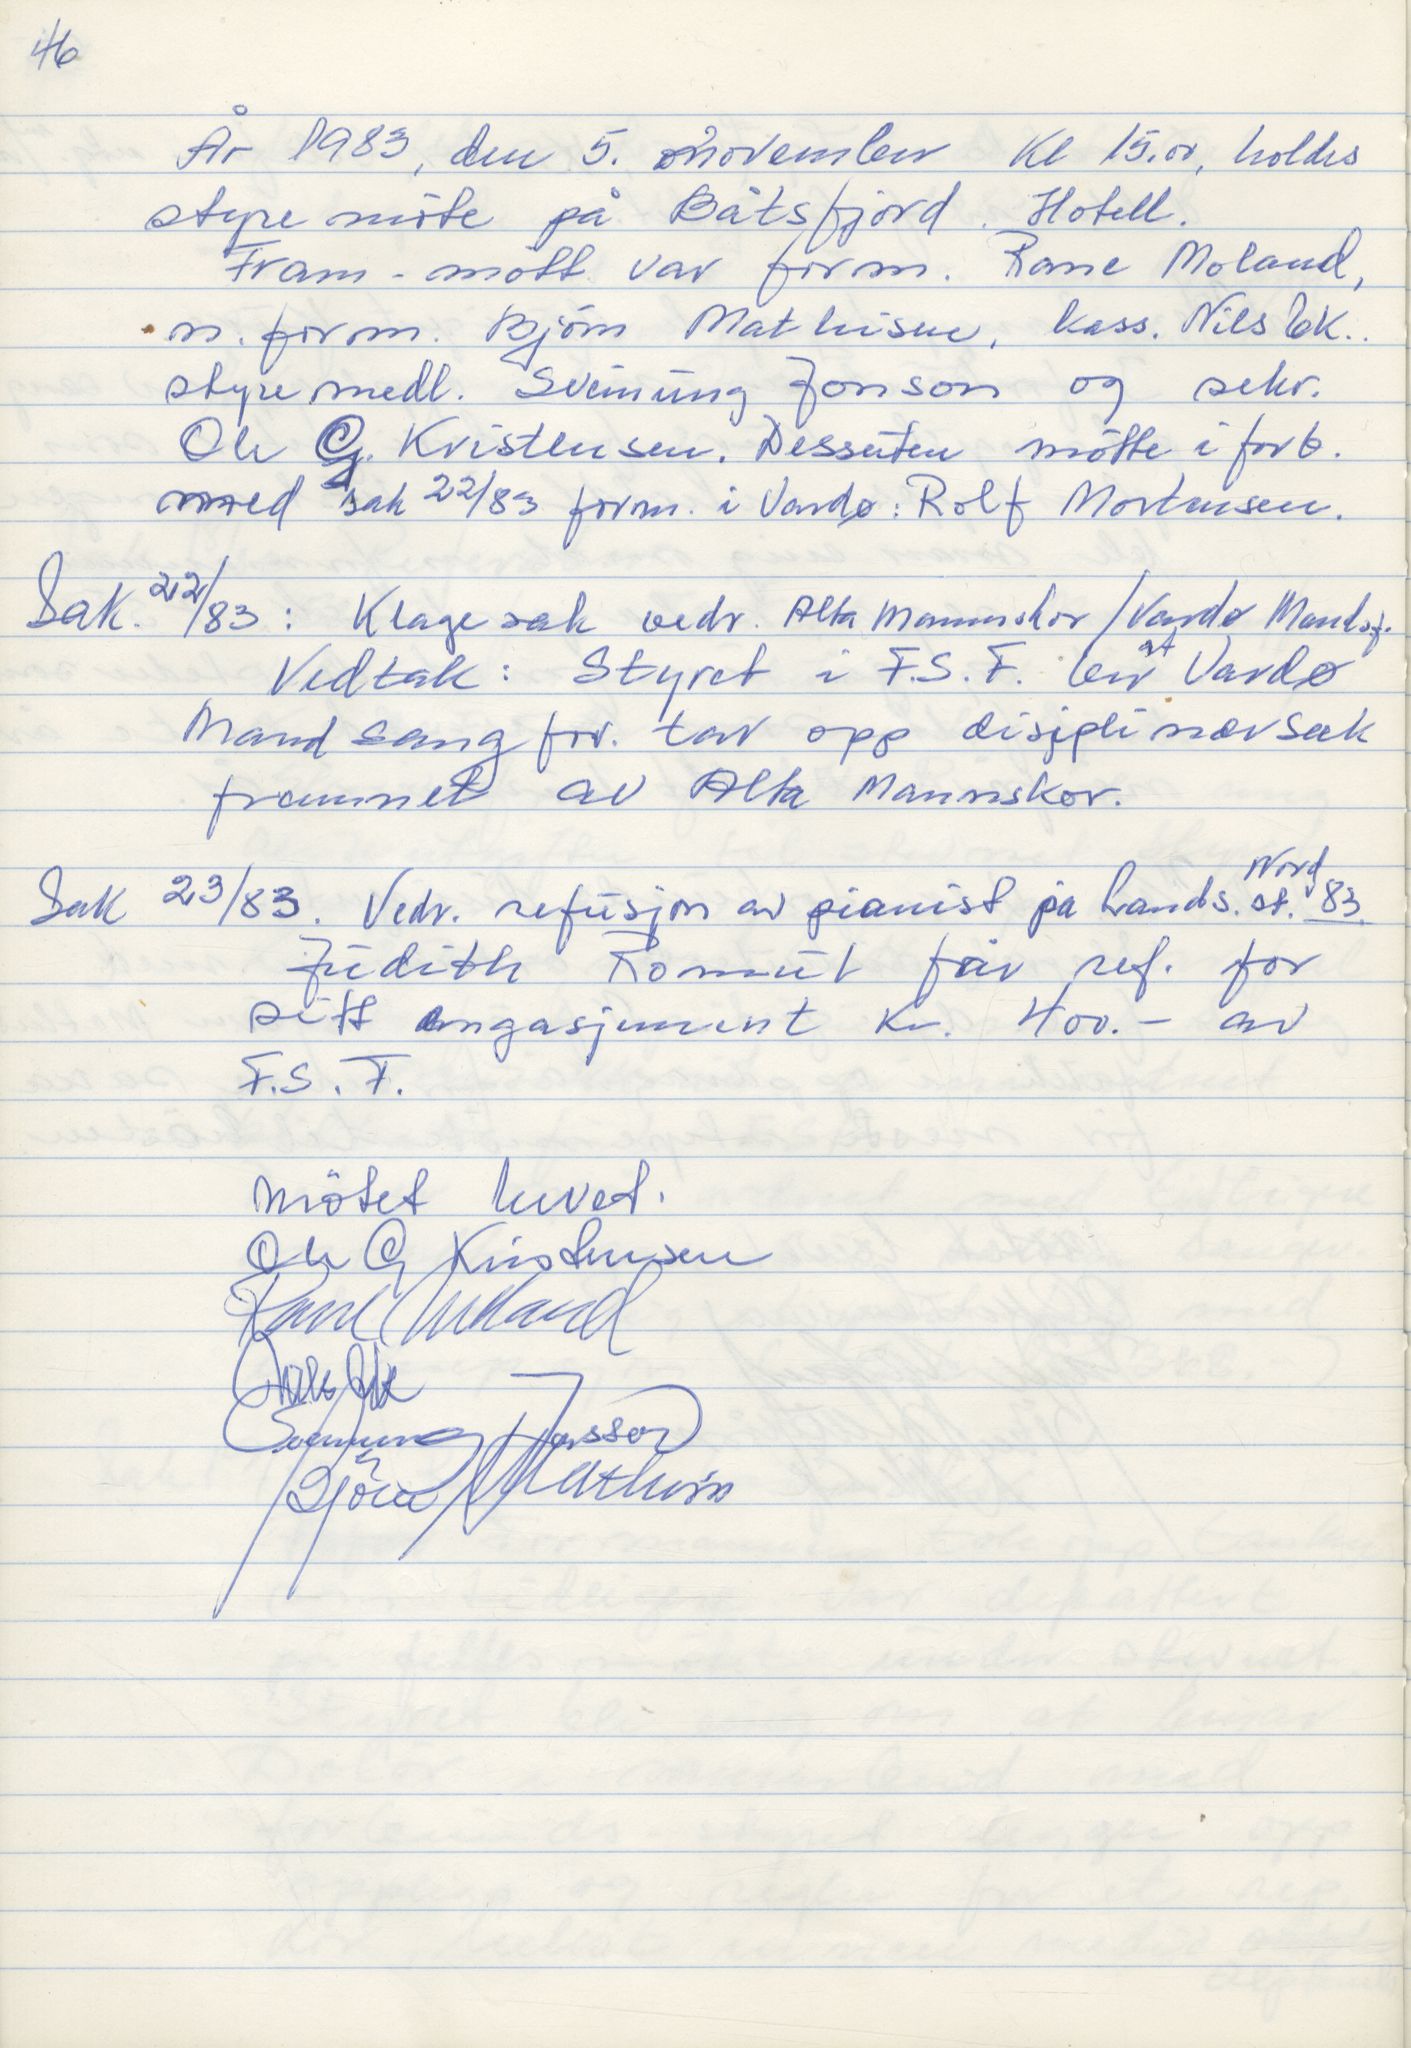 46
År 1983, den 5. november Kl 15.00, holdes
styremöte på Båtsfjord Hotell.
Fram-mött var form. Rane Moland,
n.form. Björn Mathisen, kass. Nils Ek.
styremedl. Sveinung Jonson og sekr.
Ole G. Kristensen. Dessuten mötte i forb.
med sak 22/83 form. i Vardø: Rolf Mortensen.
Sak. 22/83: Klagesak vedr. Alta Mannskor/Vardø Mandsf.
Vedtak: Styret i F.S.F. ber at Vardø
Mandsangfor. tar opp disiplinærsak
fremmet av Alta Mannskor.
Sak 23/83. Vedr. refusjon av pianist på Lands.st. Nord 83
Judith Romul får ref. for
sitt engasjement Kr. 400.- av
F.S.F.
Mötet hevet.
Ole G Kristensen
Rane Moland
Nils Ek
Sveinung Jonsson
Björn Mathisen